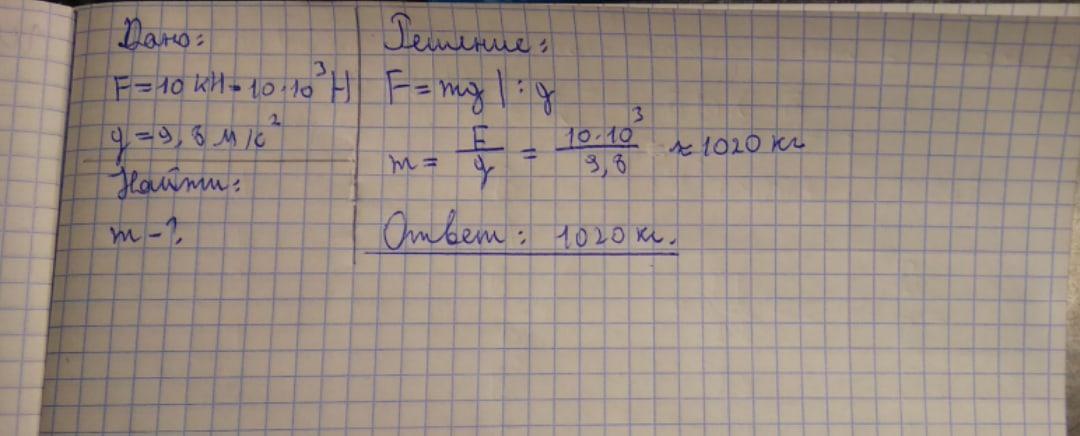 Дано:
F = 10 кН = 10·10³ Н
g = 9,8 м/с²
Найти:
m - ?
Решение:
F = mg | : g
m = F/g = 10·10³/9,8 ≈ 1020 кг
Ответ: 1020 кг.